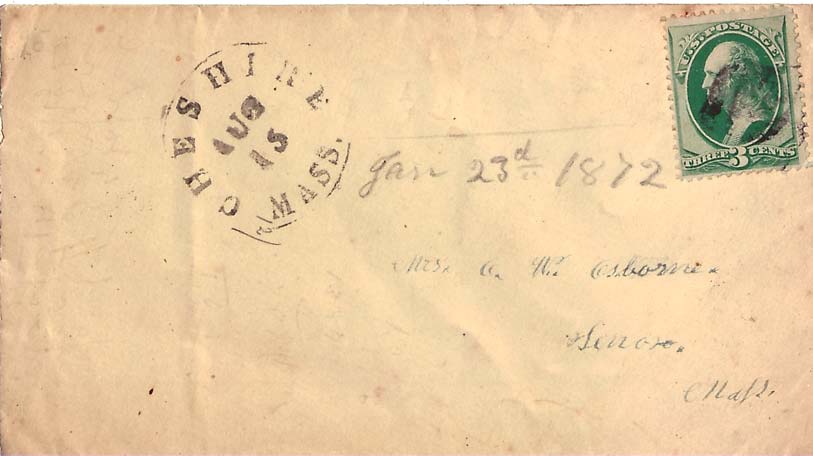 U.S. POSTAGE
THREE 3 CENTS
CHESHIRE
AUG
15
MASS.
Jan 23d 1872
Mrs. Osborne.
Lenox.
Mass.